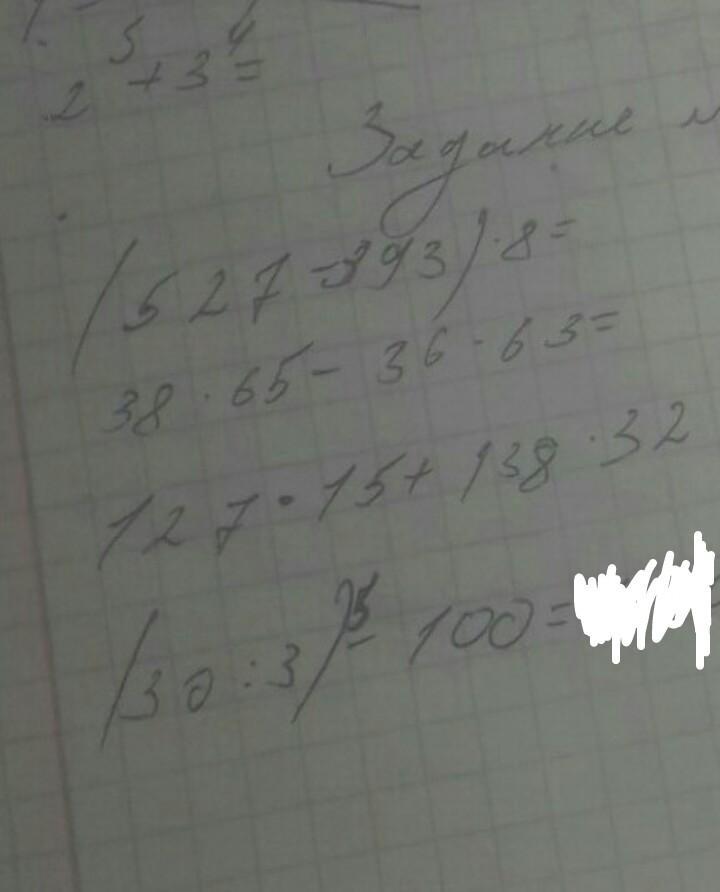 2⁵+3⁴=
Задание
(527-393)·8=
38·65-36·63=
127·15+138·32
(30:3)⁵-100=